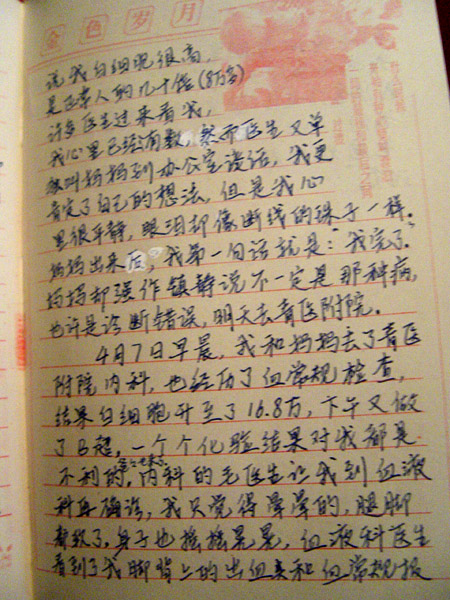 金色岁月
说我白细胞很高,
是正常人的几十倍(8万多)
许多医生过来看我,
我心里已经有数,然而医生又单
独叫妈妈到办公室谈话,我更
肯定了自己的想法,但是我心
里很平静,眼泪却像断线的珠子一样。
妈妈出来后,我第一句话就是:“我完了”
妈妈却强作镇静说不一定是那种病,
也许是诊断错误,明天去青医附院。
4月7日早晨,我和妈妈去了青医
附院内科,也经历了血常规检查,
结果白细胞升至了16.8万,下午又做
了B超,一个个化验结果对我都是
不利的,内科的毛医生让我到血液
科再确诊,我只觉得浑浑的,腿脚
都软了,身子也摇摇晃晃,血液科医生
看到了我脚背上的出血点和血常规报